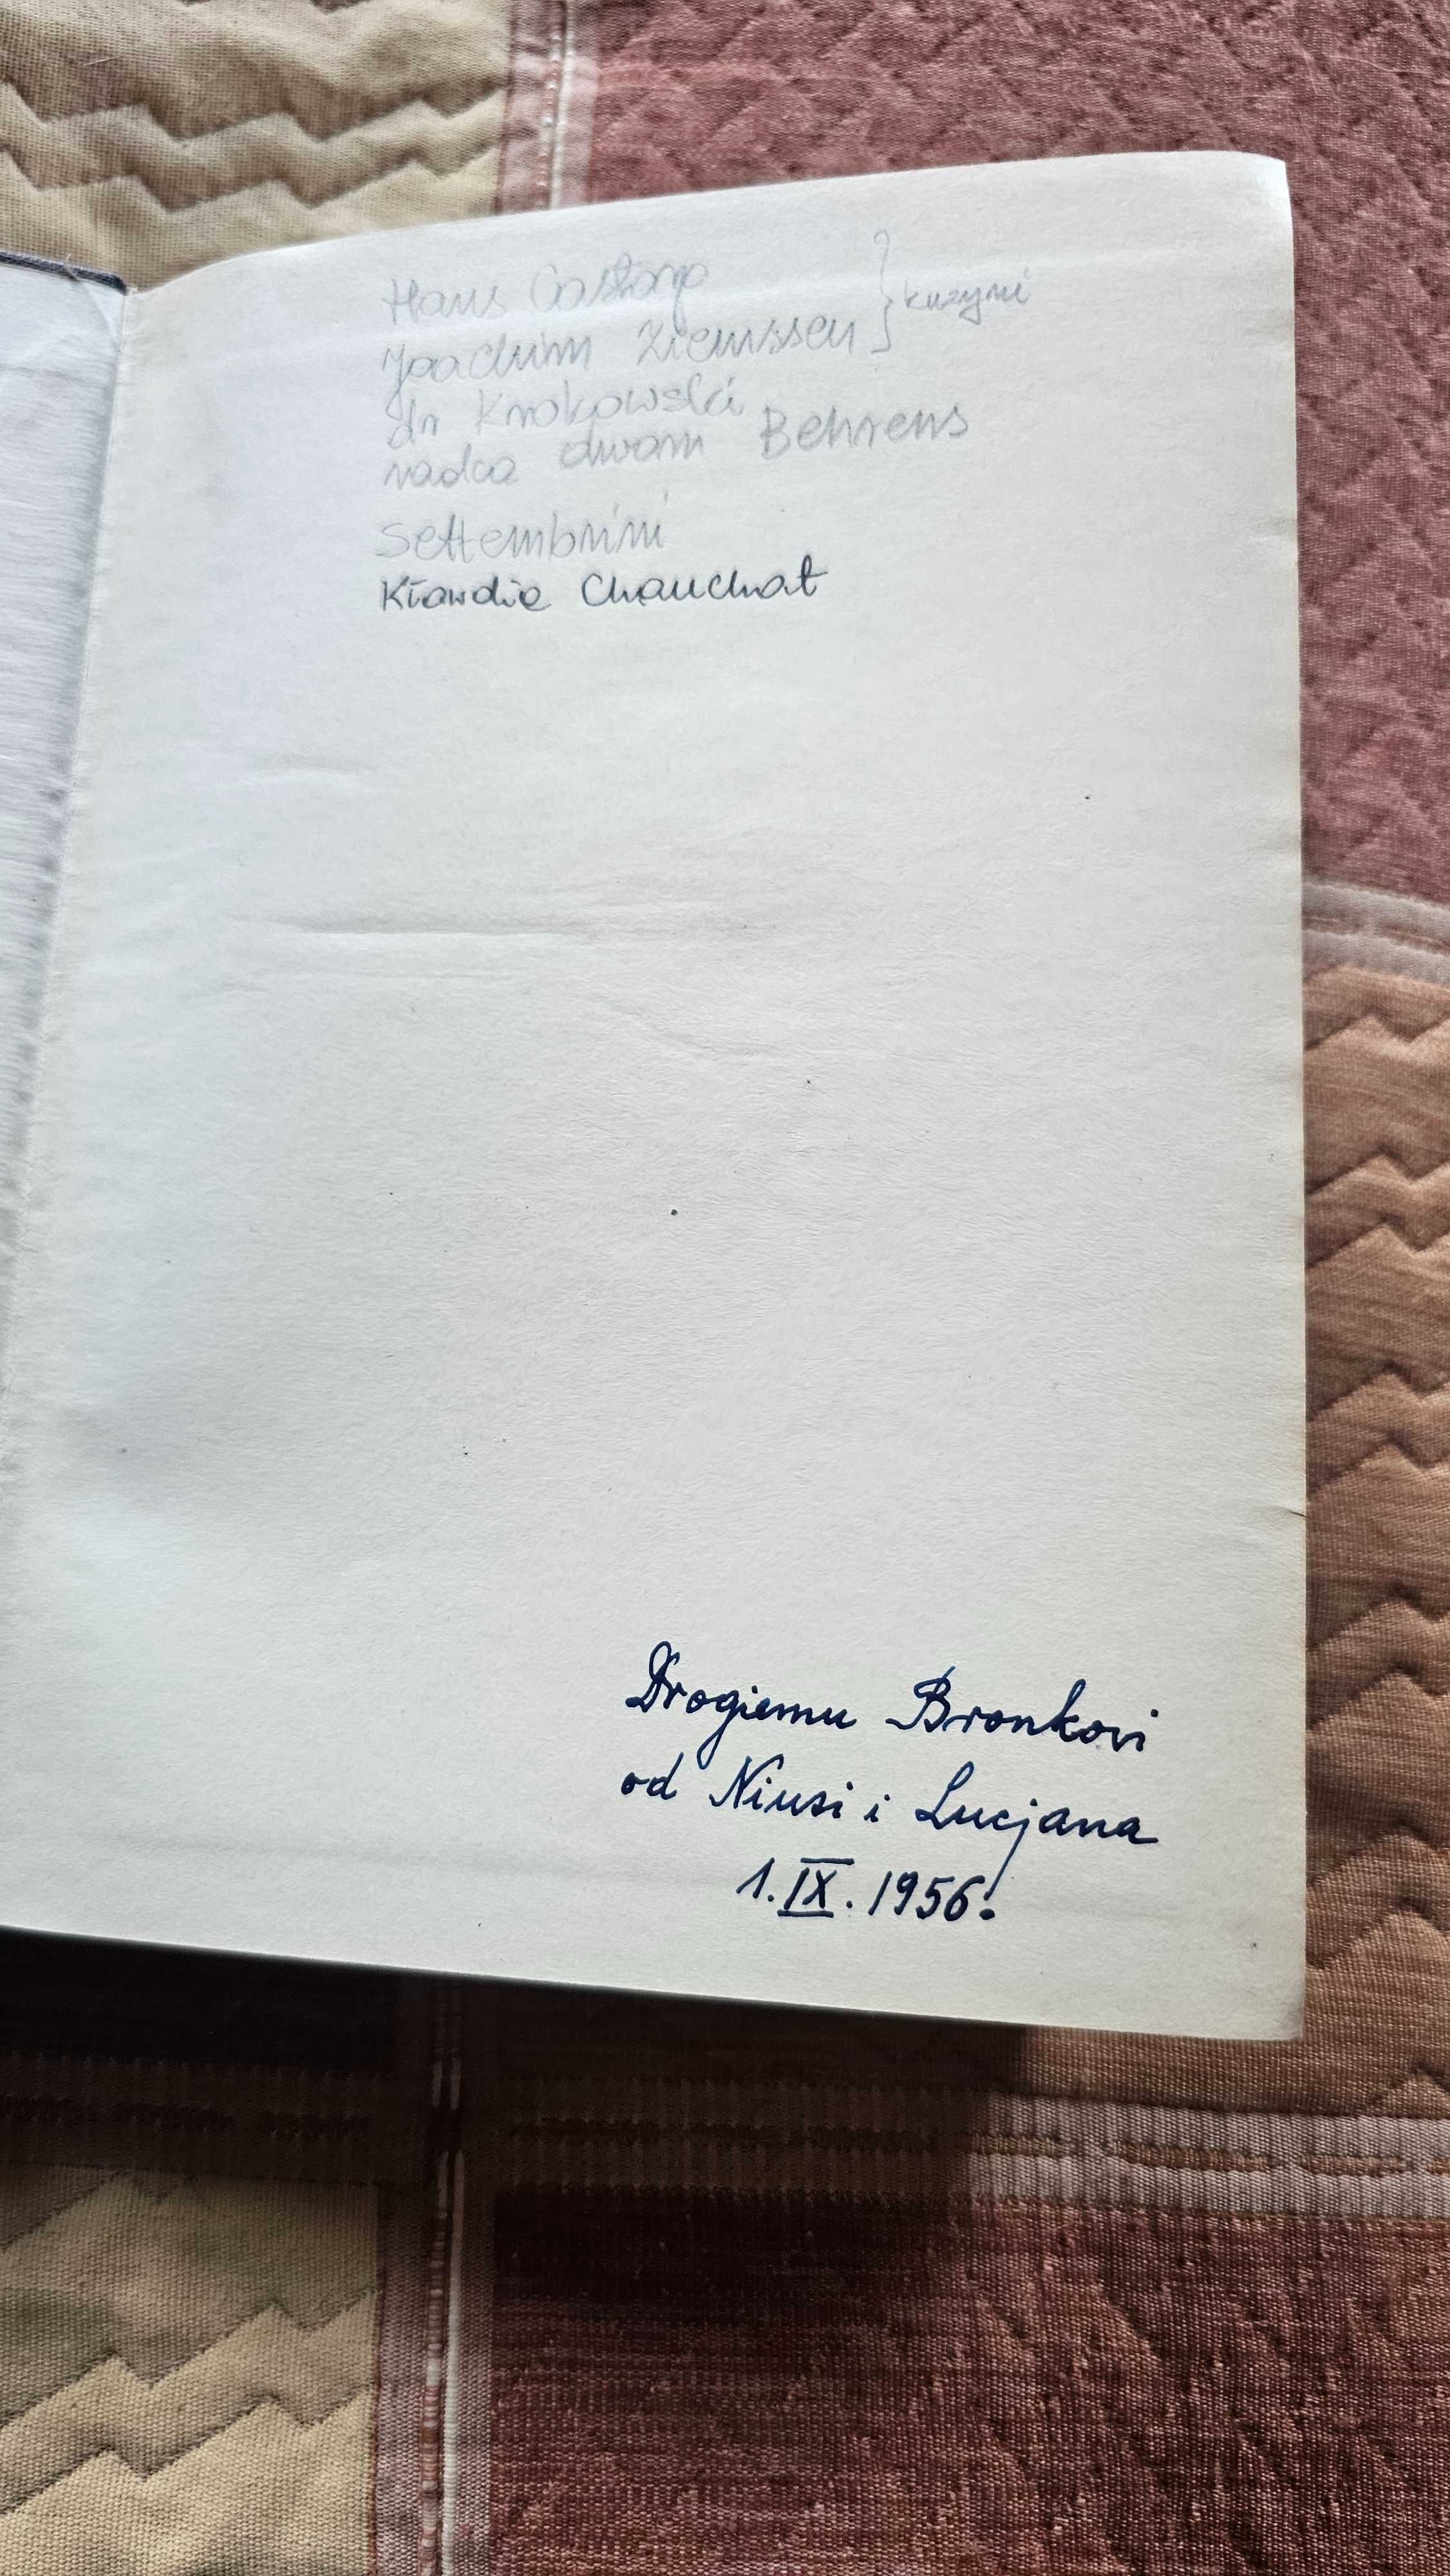 Hans Castorp
Joachim Ziemssen } kuzyni
dr Krokowski
radca dworu Behrens
Settembrini
Kławdia Chauchat
Drogiemu Bronkowi
od Niusi i Lucjana
1. IX. 1956.